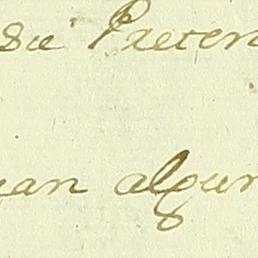 su Preten
uan algun